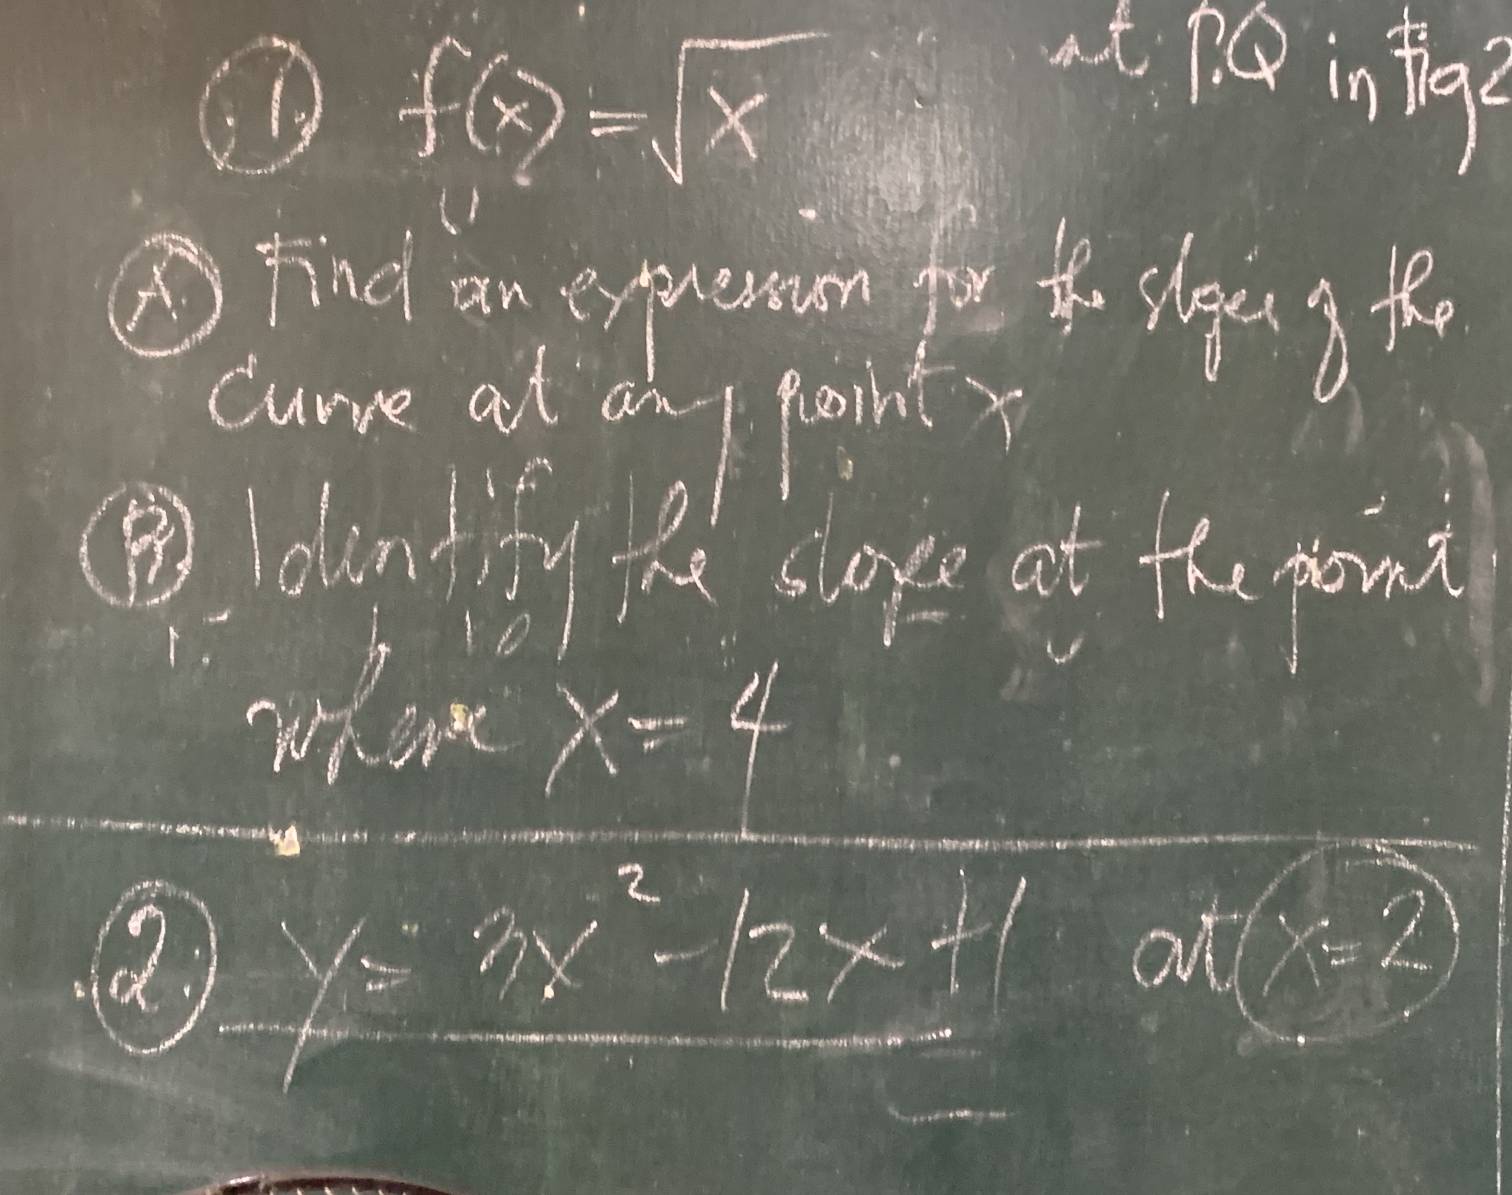 ① f(x) = √x at P.Q in Fig 2
Ⓐ Find an expression for the slope of the
curve at any point x
Ⓑ Identify the slope at the point
where x = 4
② y = 3x² - 12x + 1 at x = 2